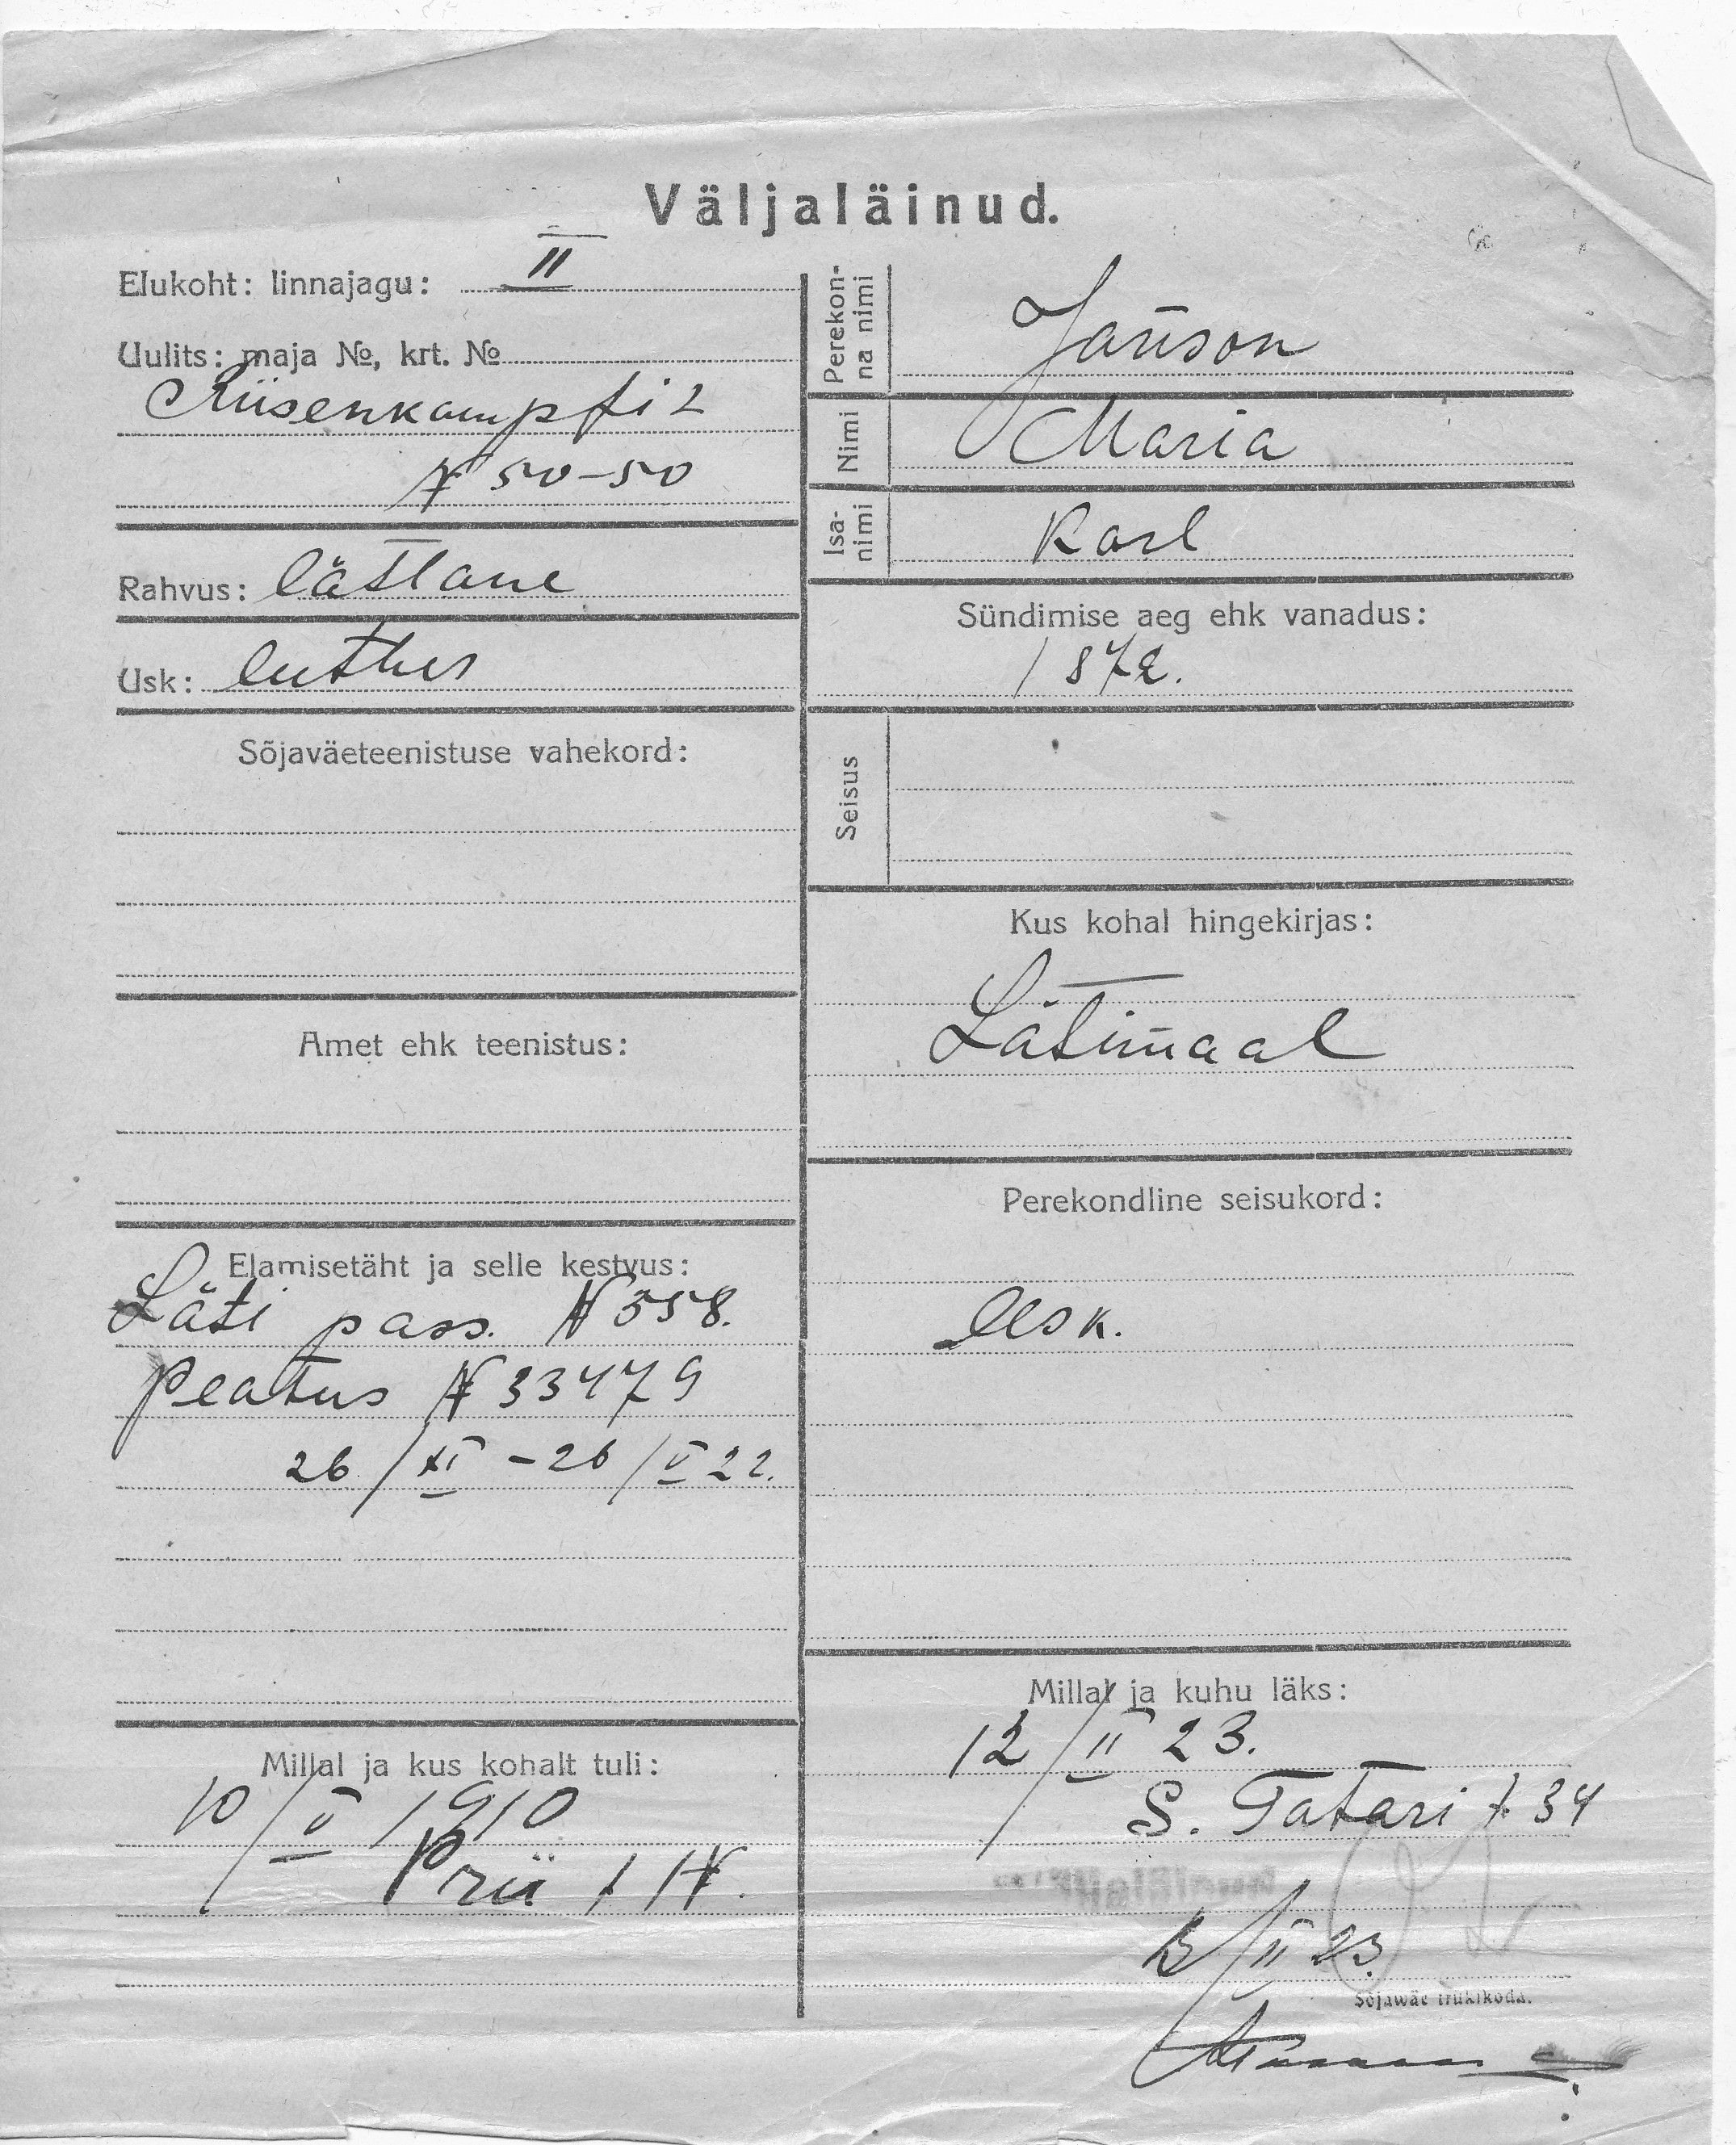 Väljaläinud.
Elukoht: linnajagu: II
Uulits: maja №, krt. №
Riisenkampfi 2
№ 50-50
Rahvus: lätlane
Usk: luther
Sõjaväeteenistuse vahekord:
Amet ehk teenistus:
Elamisetäht ja selle kestvus:
Läti pass. № 558.
Peatus № 33479
26/XI - 26/V 22.
Millal ja kus kohalt tuli:
10/V 1910
Perekon-
na nimi
Janson
Nimi
Maria
Isa-
nimi
Karl
Sündimise aeg ehk vanadus:
1872.
Seisus
Kus kohal hingekirjas:
Lätimaal
Perekondline seisukord:
lesk.
Millal ja kuhu läks:
12/II 23.
S. Tatari t. 34
13/II 23.
Sõjawäe trükikoda.